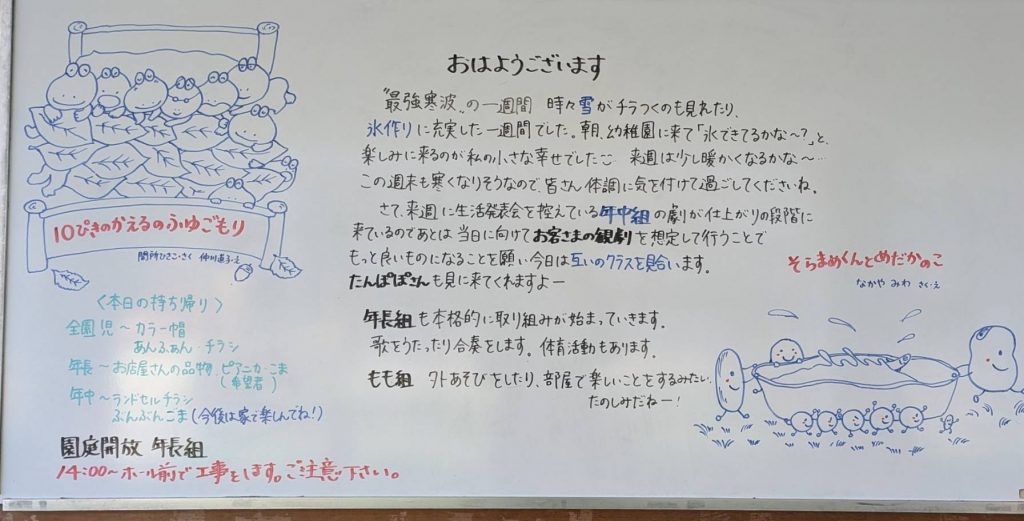 おはようございます
"最強寒波"の一週間 時々雪がチラつくのも見れたり、
氷作りに充実した一週間でした。朝、幼稚園に来て「氷できてるかな〜?」と、
楽しみに来るのが私の小さな幸せでした 来週は少し暖かくなるかな〜…
この週末も寒くなりそうなので、皆さん体調に気を付けて過ごしてくださいね。
さて、来週に生活発表会を控えている年中組の劇が仕上がりの段階に
来ているのであとは当日に向けてお客さまの観劇を想定して行うことで
もっと良いものになることを願い今日は互いのクラスを見合います。
たんぽぽさんも見に来てくれますよー
年長組も本格的に取り組みが始まっていきます。
歌をうたったり合奏をします。体育活動もあります。
もも組 外あそびをしたり、部屋で楽しいことをするみたい。
たのしみだねー!
10ぴきのかえるのふゆごもり
間所ひさこ・さく 仲川道子・え
〈本日の持ち帰り〉
全園児〜カラー帽
あんふぁん・チラシ
年長〜お店屋さんの品物、ピアニカ・こま
(希望者)
年中〜ランドセルチラシ
ぶんぶんこま(今後は家で楽しんでね!)
園庭開放 年長組
14:00〜ホール前で工事をします。ご注意下さい。
そらまめくんとめだかのこ
なかや みわ さく・え